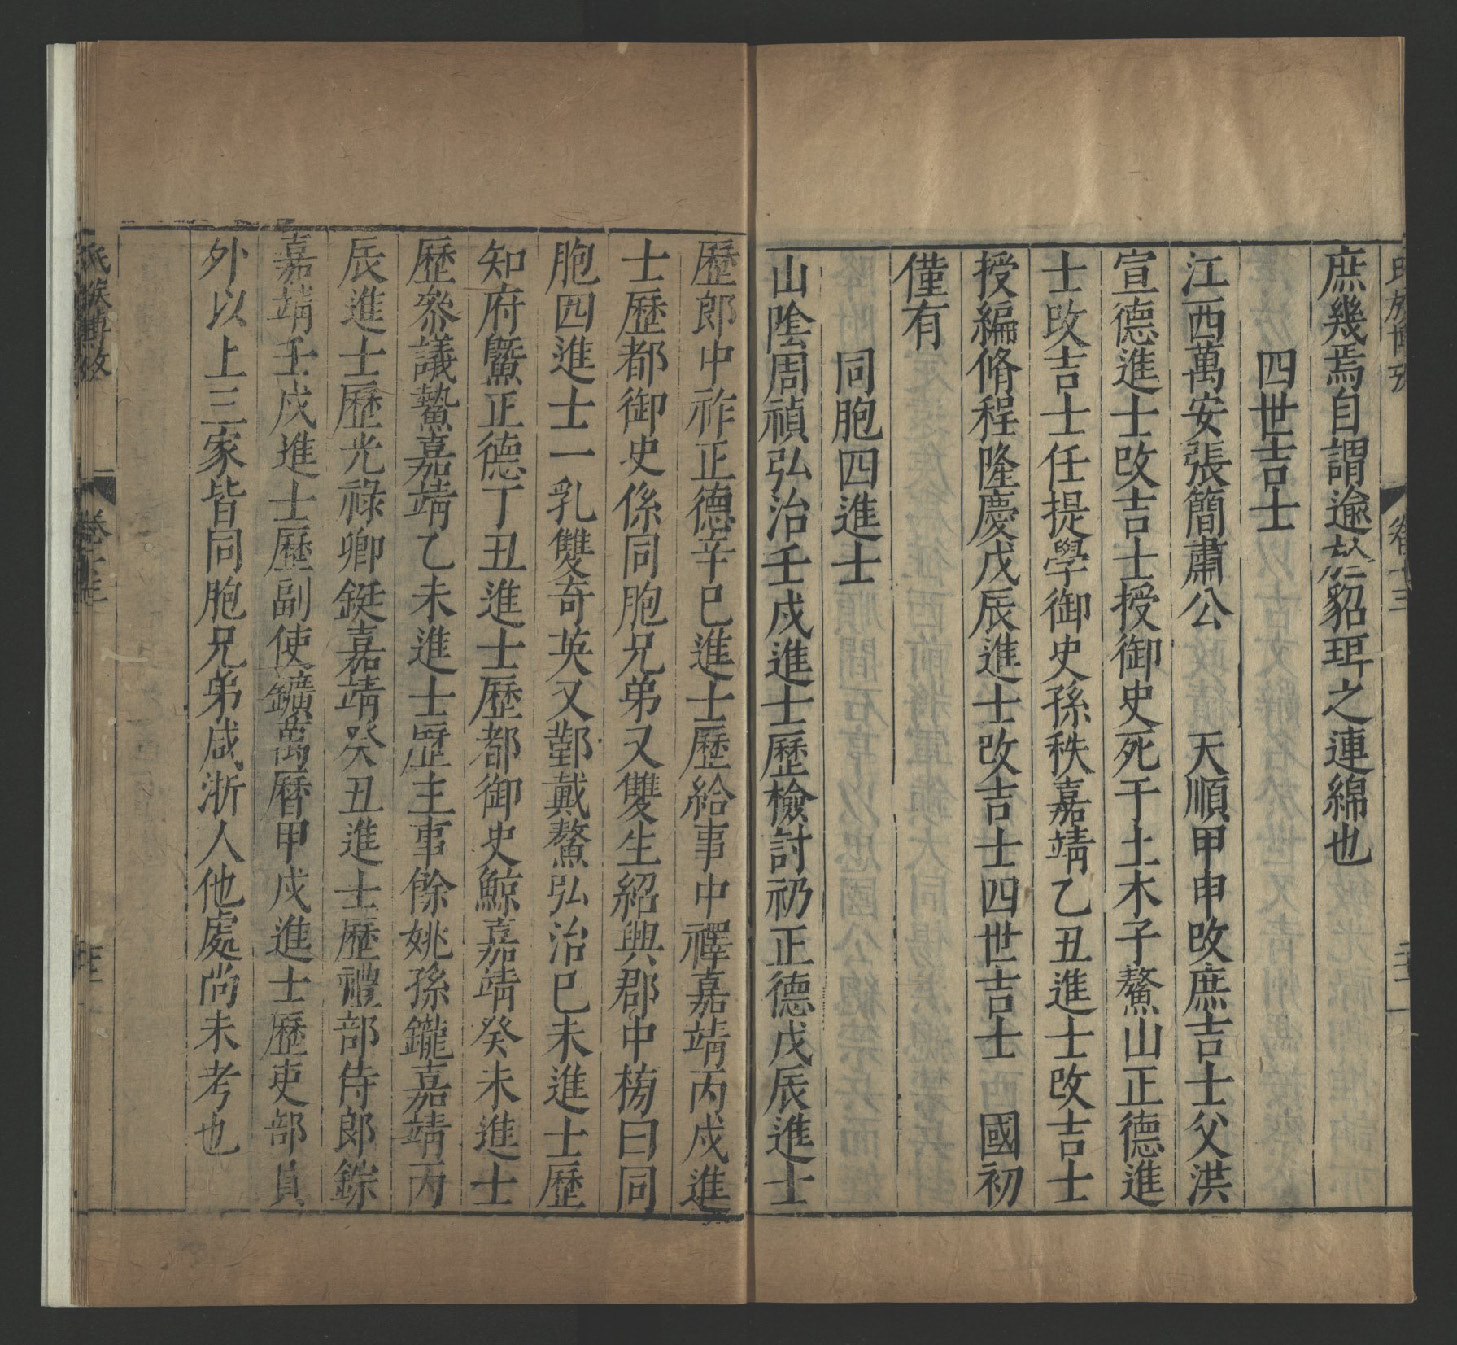 庶幾焉自謂逾於貂珥之連綿也
四世吉士
江西萬安張簡肅公 天順甲申改庶吉士父洪
宣德進士改吉士授御史死于土木子鰲山正德進
士改吉士任提學御史孫秩嘉靖乙丑進士改吉士
授編脩程隆慶戊辰進士改吉士四世吉士 國初
僅有
同胞四進士
山陰周禎弘治壬戌進士歷檢討礽正德戊辰進士
歷郎中祚正德辛巳進士歷給事中禪嘉靖丙戌進
士歷都御史係同胞兄弟又雙生紹興郡中榜曰同
胞四進士一乳雙奇英又鄞戴鰲弘治己未進士歷
知府鱀正德丁丑進士歷都御史鯨嘉靖癸未進士
歷參議鷙嘉靖乙未進士歷主事餘姚孫鑨嘉靖丙
辰進士歷光祿卿鋌嘉靖癸丑進士歷禮部侍郎錝
嘉靖壬戌進士歷副使鑛萬曆甲戌進士歷吏部員
外以上三家皆同胞兄弟咸浙人他處尚未考也
氏族博攷
卷十三